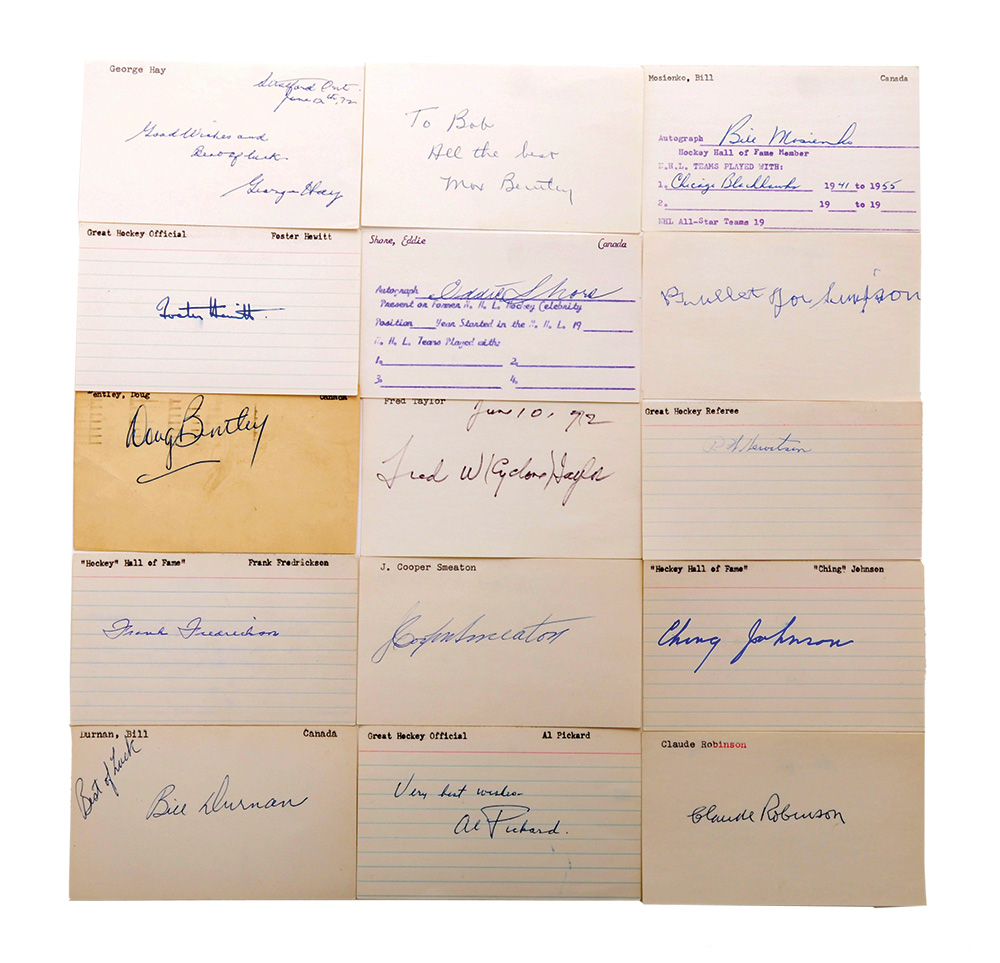 George Hay
Stratford Ont.
June 12th, 72
Good Wishes and
Best of luck
George Hay
To Bob
All the best
Max Bentley
Mosienko, Bill Canada
Autograph Bill Mosienko
Hockey Hall of Fame Member
N.H.L. TEAMS PLAYED WITH:
1. Chicago Blackhawks 1941 to 1955
2. 19 to 19
NHL All-Star Teams 19
Great Hockey Official Foster Hewitt
Foster Hewitt
Shore, Eddie Canada
Autograph Eddie Shore
Present or Former N. H. L. Hockey Celebrity
Position Year Started in the N. H. L. 19
N. H. L. Teams Played with:
1. 2.
3. 4.
Bullet Joe Simpson
entley, Doug Canada
Doug Bentley
Fred Taylor
June 10, 72
Fred W (Cyclone) Taylor
Great Hockey Referee
Hewitson
"Hockey" Hall of Fame" Frank Fredrickson
Frank Fredrickson
J. Cooper Smeaton
J Cooper Smeaton
"Hockey Hall of Fame" "Ching" Johnson
Ching Johnson
Durnan, Bill Canada
Best of Luck
Bill Durnan
Great Hockey Official Al Pickard
Very best wishes
Al Pickard.
Claude Robinson
Claude Robinson